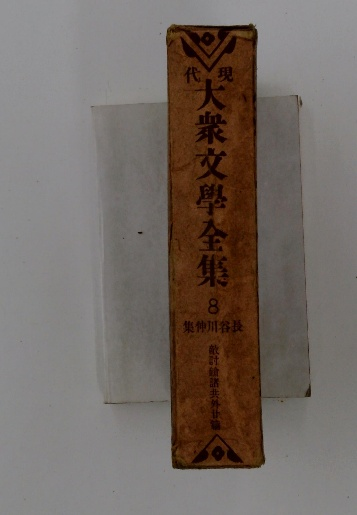 現代
大衆文學全集
8
長谷川伸集
敵討鎗諸共外廿篇